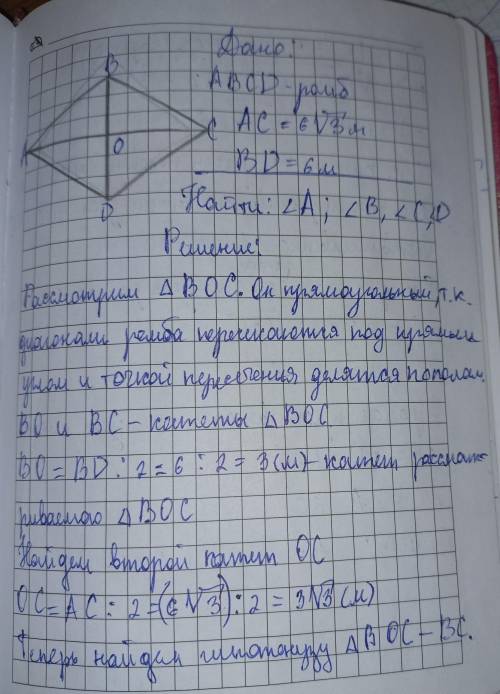 Дано:
B
ABCD - ромб
AC = 6√3 м
A O C
BD = 6 м
D
Найти: ∠A; ∠B, ∠C, D
Решение:
Рассмотрим △ BOC. Он прямоугольный, т.к.
диагонали ромба пересекаются под прямым
углом и точкой пересечения делятся пополам.
BO и BC - катеты △BOC
BO = BD : 2 = 6 : 2 = 3 (м) - катет рассмат
риваемого △ BOC
Найдем второй катет OC
OC = AC : 2 = (6√3) : 2 = 3√3 (м)
Теперь найдем гипотенузу △BOC - BC.